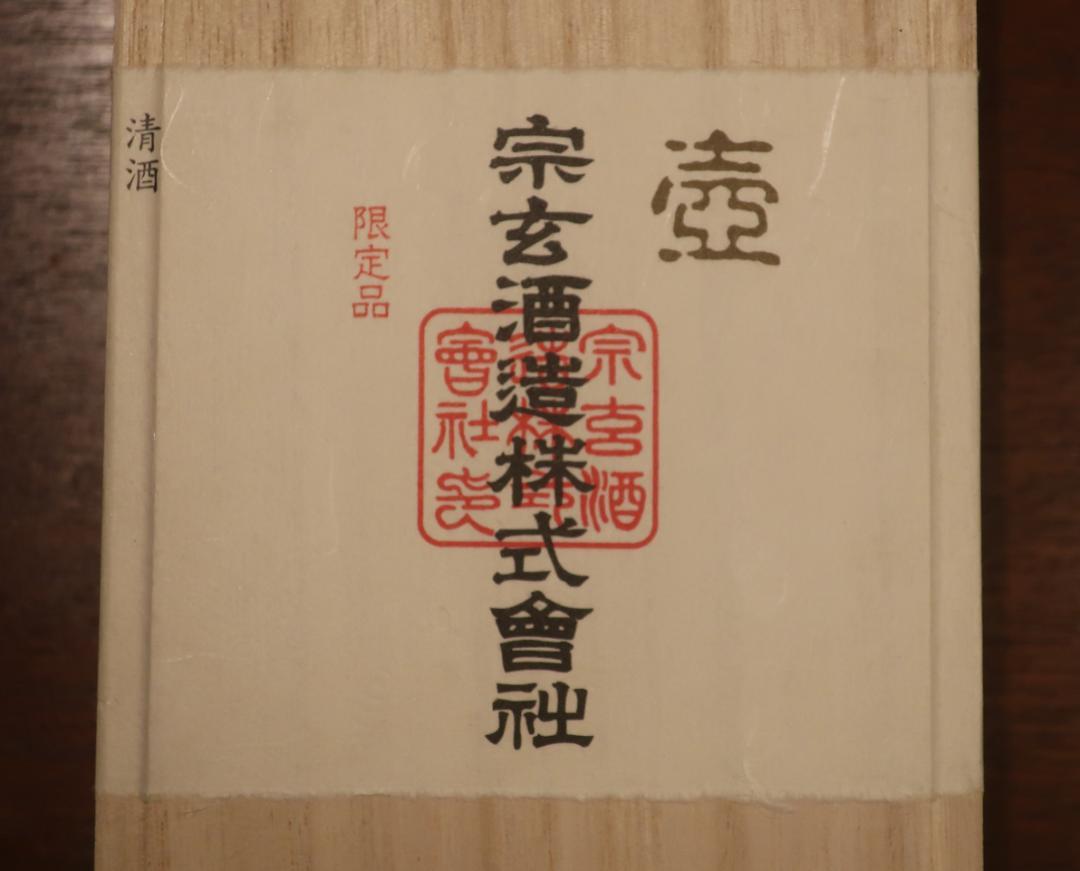 壺
宗玄酒造株式會社
宗玄酒
造株式
會社印
限定品
清酒